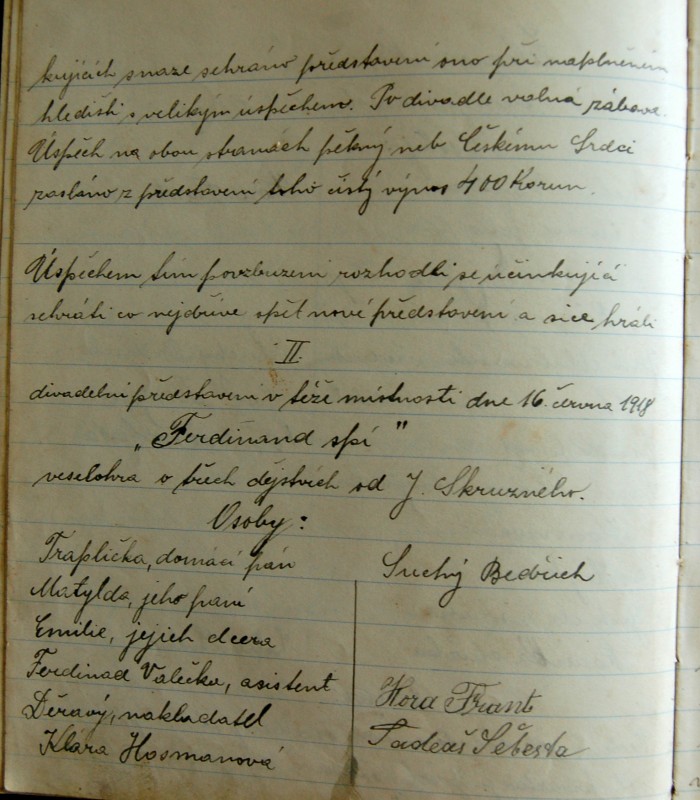 kujících snaze sehráno představení ono při naplněném
hledišti s velikým úspěchem. Po divadle volná zábava.
Úspěch na obou stranách pěkný neb Českému Srdci
zasláno z představení toho čistý výnos 400 Korun.
Úspěchem tím povzbuzeni rozhodli se účinkující
sehráti co nejdříve opět nové představení a sice hráli
II.
divadelní představení v téže místnosti dne 16. června 1918
„Ferdinand spí"
veselohra o třech dějstvích od J. Skružného.
Osoby:
Traplička, domácí pán Suchý Bedřich
Matylda, jeho paní
Emilie, jejich dcera
Ferdinad Valečka, asistent Hora Frant
Děravý, nakladatel Tadeáš Šebesta
Klára Hosmanová